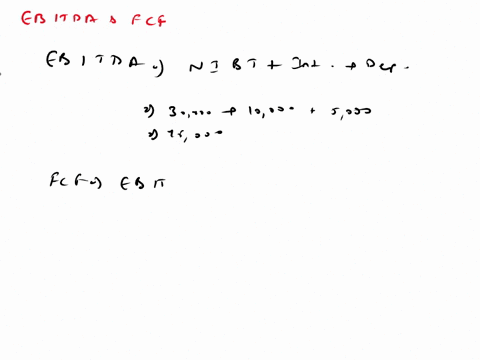 EBITDA & FCF
EBITDA => NIBT + Int. + Dep.
=> 30,000 + 10,000 + 5,000
=> 45,000
FCF => EBIT